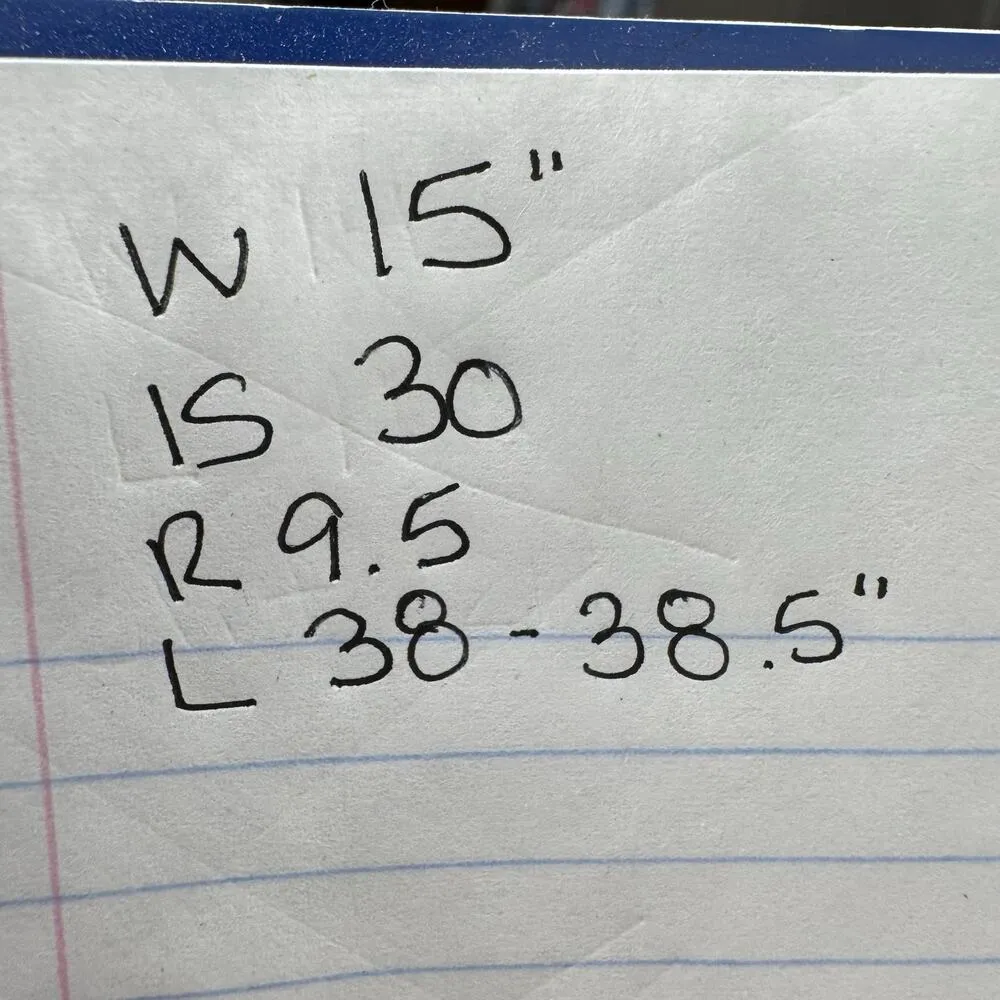 W 15"
IS 30
R 9.5
L 38-38.5"